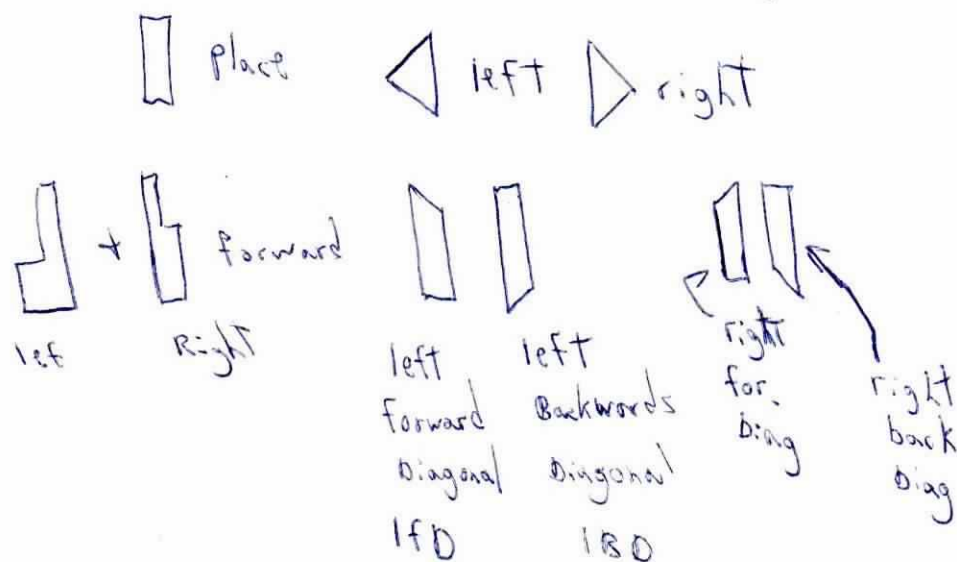 place
left
right
+
forward
lef
Right
left
forward
Diagonal
lfD
left
Backwords
Diagonal
lBD
right
for.
Diag
right
back
Diag